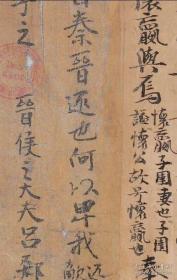 懷嬴與焉 懷嬴子圉妻也子圉
謚懷公故号懷嬴也
秦晉匹也何以卑我
之 晉侯之大夫呂郤